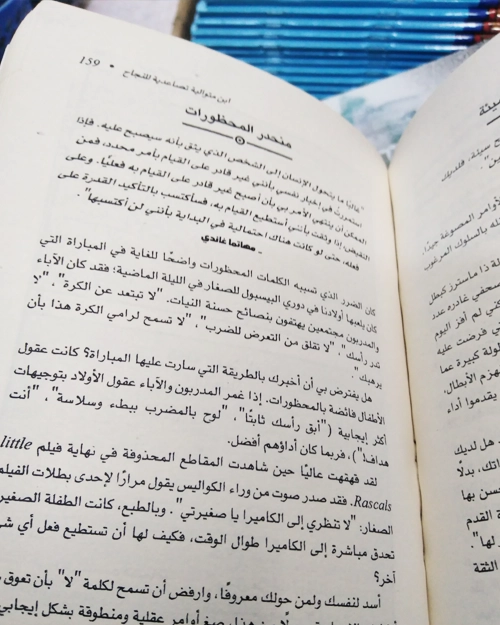 ابنِ متوالية تصاعدية للنجاح • 159
منحدر المحظورات
"غالبًا ما يتحول الإنسان إلى الشخص الذي يثق بأنه سيصبح عليه. فإذا
استمررتُ في إخبار نفسي بأنني غير قادر على القيام بأمر محدد، فمن
الممكن أن ينتهي الأمر بي بأن أصبح غير قادر على القيام به فعليًا. وعلى
النقيض إذا وثقت بأنني أستطيع القيام به، فسأكتسب بالتأكيد القدرة على
فعله، حتى لو كانت هناك احتمالية في البداية بأنني لن أكتسبها".
- مهاتما غاندي
كان الضرر الذي تسببه الكلمات المحظورات واضحًا للغاية في المباراة التي
كان يلعبها أولادنا في دوري البيسبول للصغار في الليلة الماضية؛ فقد كان الآباء
والمدربون مجتمعين يهتفون بنصائح حسنة النيات. "لا تبتعد عن الكرة"، "لا
تدر رأسك"، "لا تقلق من التعرض للضرب"، "لا تسمح لرامي الكرة هذا بأن
يرهبك".
هل يفترض بي أن أخبرك بالطريقة التي سارت عليها المباراة؟ كانت عقول
الأطفال فائضة بالمحظورات. إذا غمر المدربون والآباء عقول الأولاد بتوجيهات
أكثر إيجابية ("أبق رأسك ثابتًا"، "لوح بالمضرب ببطء وسلاسة"، "أنت
هداف")، فربما كان أداؤهم أفضل.
لقد قهقهت عاليًا حين شاهدت المقاطع المحذوفة في نهاية فيلم little
Rascals. فقد صدر صوت من وراء الكواليس يقول مرارًا لإحدى بطلات الفيلم
الصغار: "لا تنظري إلى الكاميرا يا صغيرتي". وبالطبع، كانت الطفلة الصغيرة
تحدق مباشرة إلى الكاميرا طوال الوقت، فكيف لها أن تستطيع فعل أي
آخر؟
أسد لنفسك ولمن حولك معروفًا، وارفض أن تسمح لكلمة "لا" بأن تعوق
صغ أوامر عقلية ومنطوقة بشكل إيجابي
سيئة، فلديك
الأوامر المصوغة جيدًا.
بالسلوك المرغوب
ذا ماسترز كيعلل
صحفي غادره عدد
لم أفز اليوم
فرضت عليه
كبيرة عما
يهزم الأبطال.
يقدموا أداء
هل لديك
بدلًا
بها
القدم
لها".
الثقة